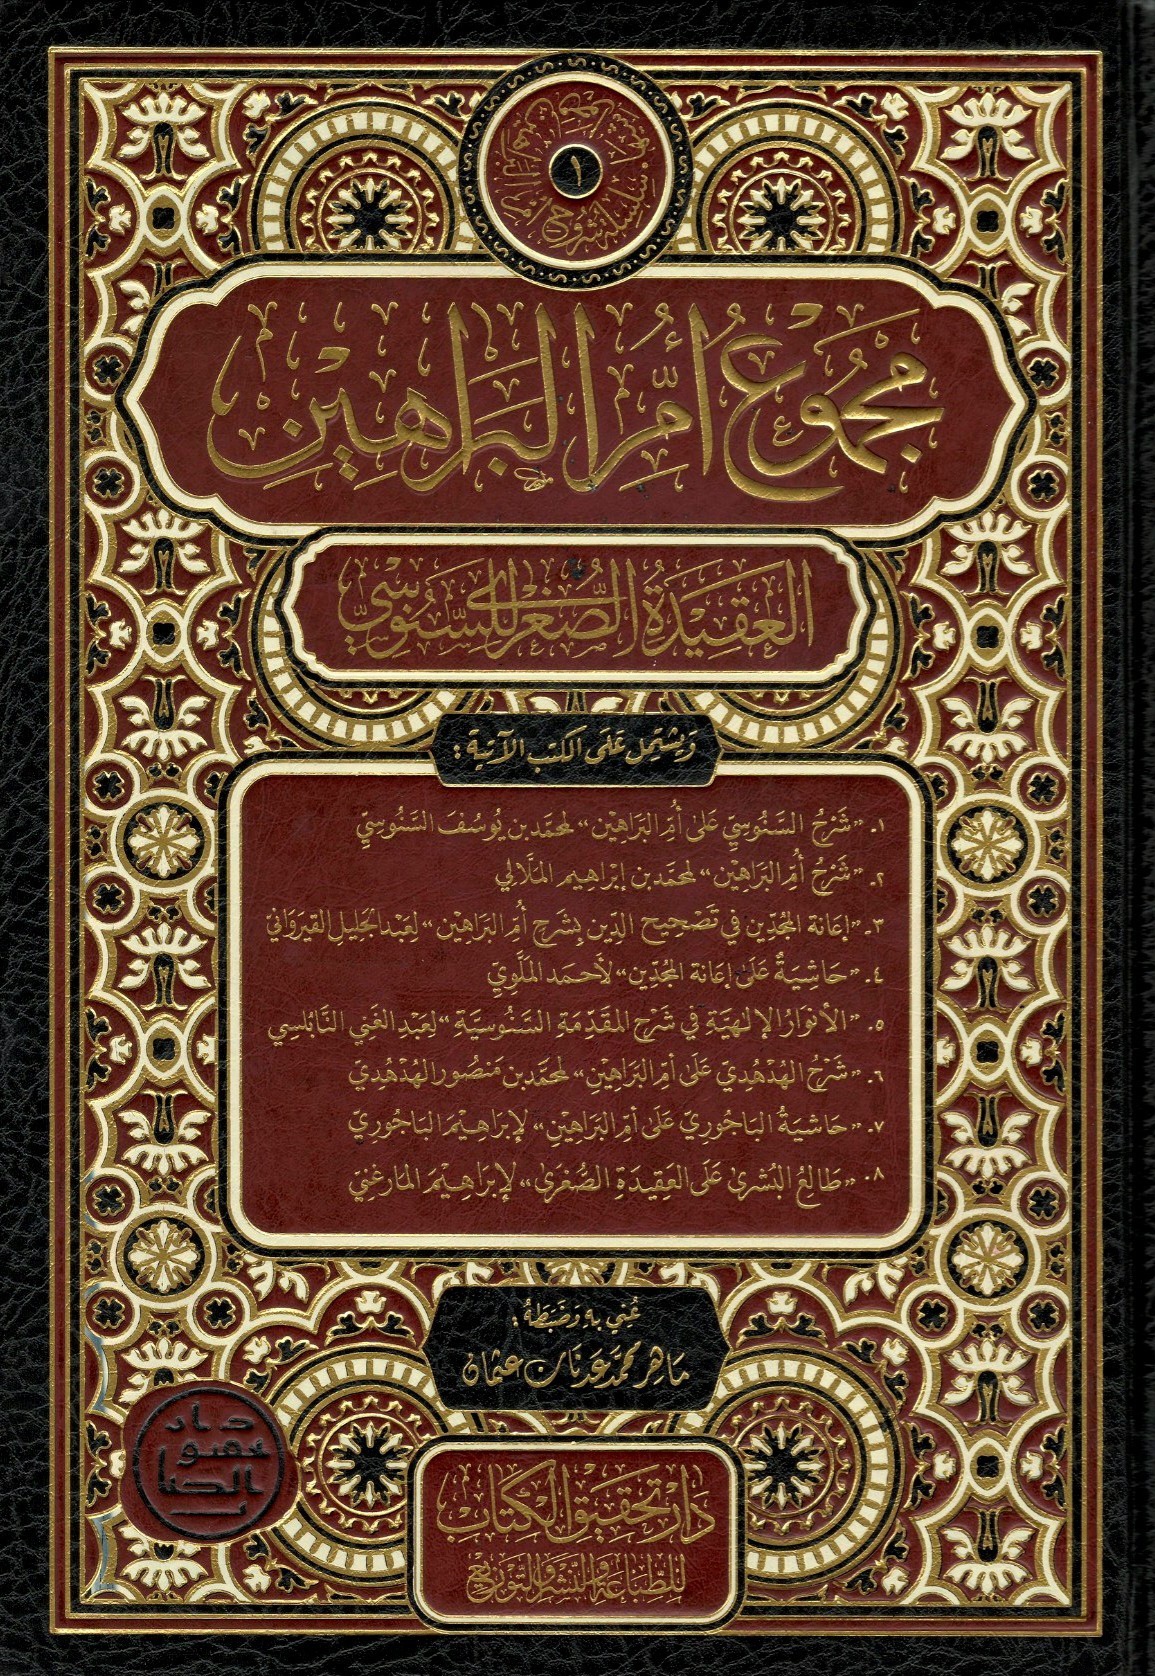 سلسلة شروح أم البراهين
١
مجموع أم البراهين
العقيدة الصغرى للسنوسي
ويشتمل على الكتب الآتية:
١. «شرح السنوسي على أم البراهين» لمحمد بن يوسف السنوسي
٢. «شرح أم البراهين» لمحمد بن إبراهيم الملالي
٣. «إعانة المجدين في تصحيح الدين بشرح أم البراهين» لعبد الجليل القيرواني
٤. «حاشية على إعانة المجدين» لأحمد الملوي
٥. «الأنوار الإلهية في شرح المقدمة السنوسية» لعبد الغني النابلسي
٦. «شرح الهدهدي على أم البراهين» لمحمد بن منصور الهدهدي
٧. «حاشية الباجوري على أم البراهين» لإبراهيم الباجوري
٨. «طالع البشرى على العقيدة الصغرى» لإبراهيم المارغني
عني به وضبطه:
ماهر محمد عدنان عثمان
دار تحقيق الكتاب
للطباعة والنشر والتوزيع
دار
تحقيق
الكتاب